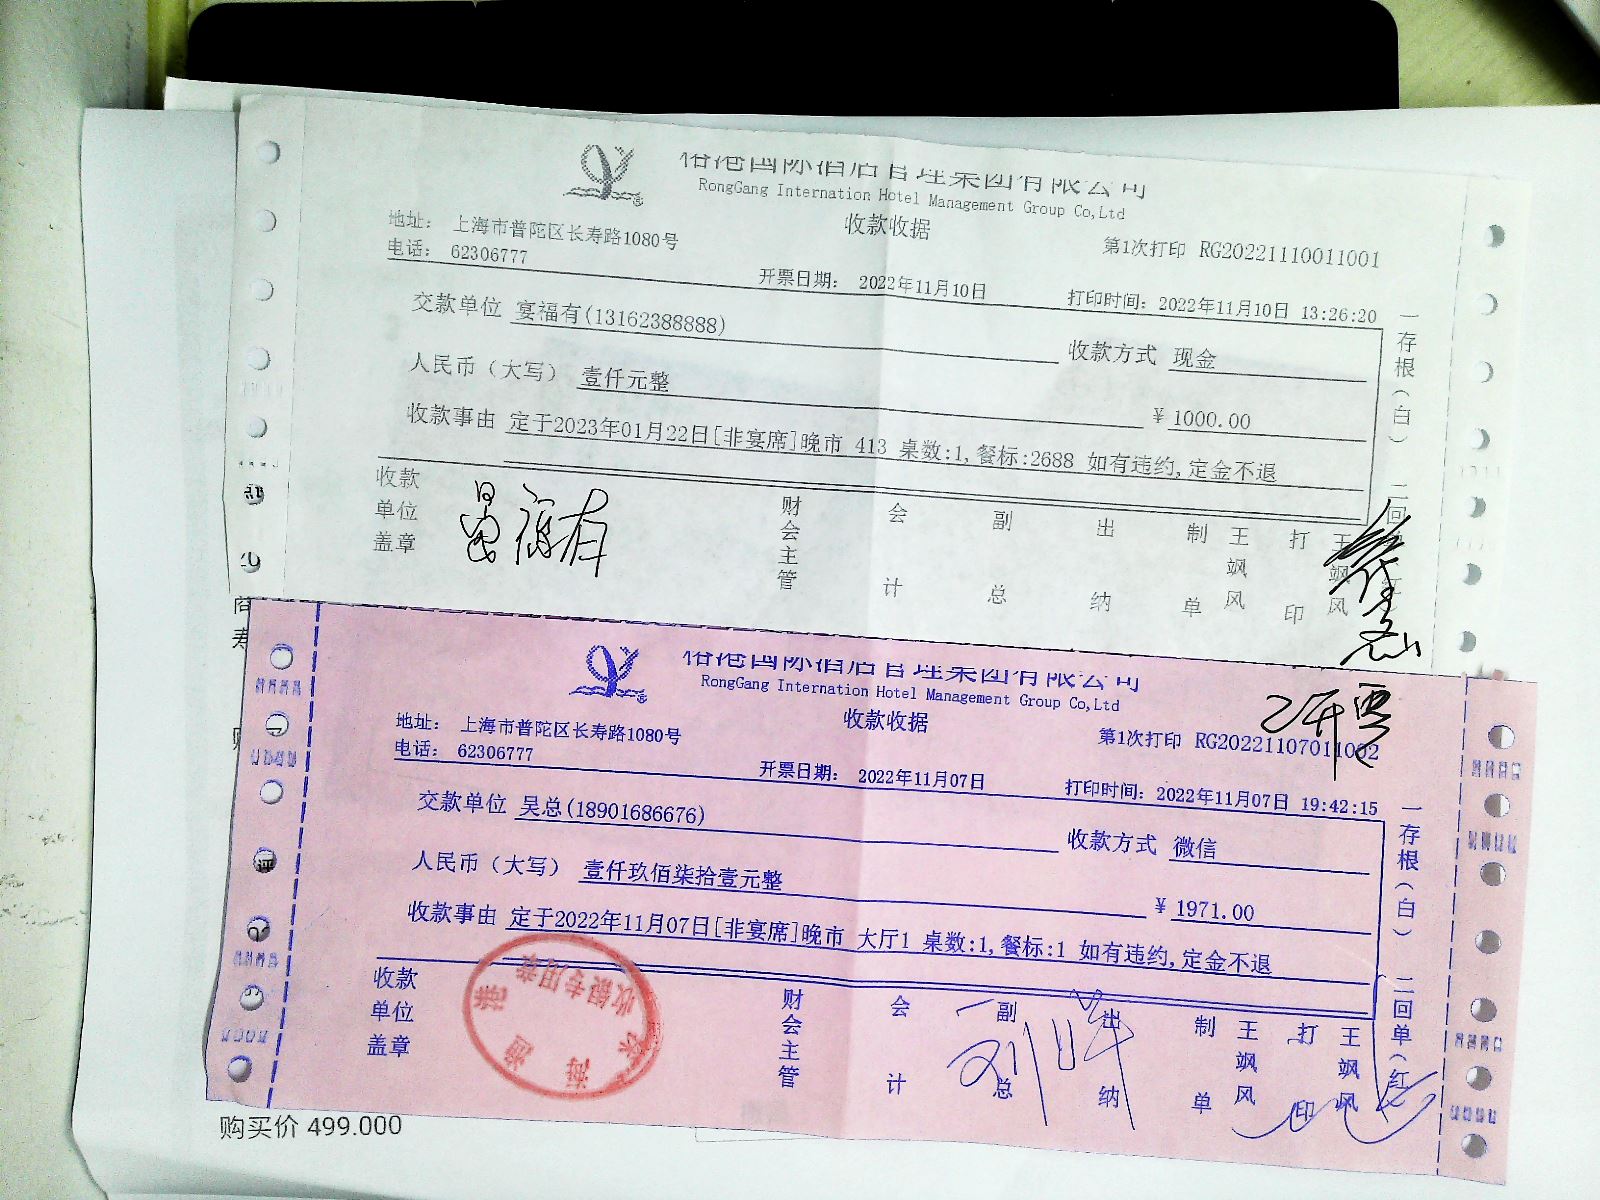 榕港国际酒店管理集团有限公司
RongGang Internation Hotel Management Group Co,Ltd
收款收据
地址： 上海市普陀区长寿路1080号
电话： 62306777
第1次打印 RG20221110011001
开票日期： 2022年11月10日
打印时间：2022年11月10日 13:26:20
交款单位 宴福有(13162388888)
收款方式 现金
人民币（大写） 壹仟元整
￥ 1000.00
收款事由 定于2023年01月22日[非宴席]晚市 413 桌数:1,餐标:2688 如有违约,定金不退
一存根（白）
收款单位盖章
财会主管
会计
副总
出纳
制单
王飒风
打印
王飒风
榕港国际酒店管理集团有限公司
RongGang Internation Hotel Management Group Co,Ltd
收款收据
已开票
地址： 上海市普陀区长寿路1080号
电话： 62306777
第1次打印 RG20221107011002
开票日期： 2022年11月07日
打印时间：2022年11月07日 19:42:15
交款单位 吴总(18901686676)
收款方式 微信
人民币（大写） 壹仟玖佰柒拾壹元整
￥ 1971.00
收款事由 定于2022年11月07日[非宴席]晚市 大厅1 桌数:1,餐标:1 如有违约,定金不退
一存根（白） 二回单（红）
收款单位盖章
收银专用章
财会主管
会计
副总
出纳
制单
王飒风
打印
王飒风
购买价 499.000